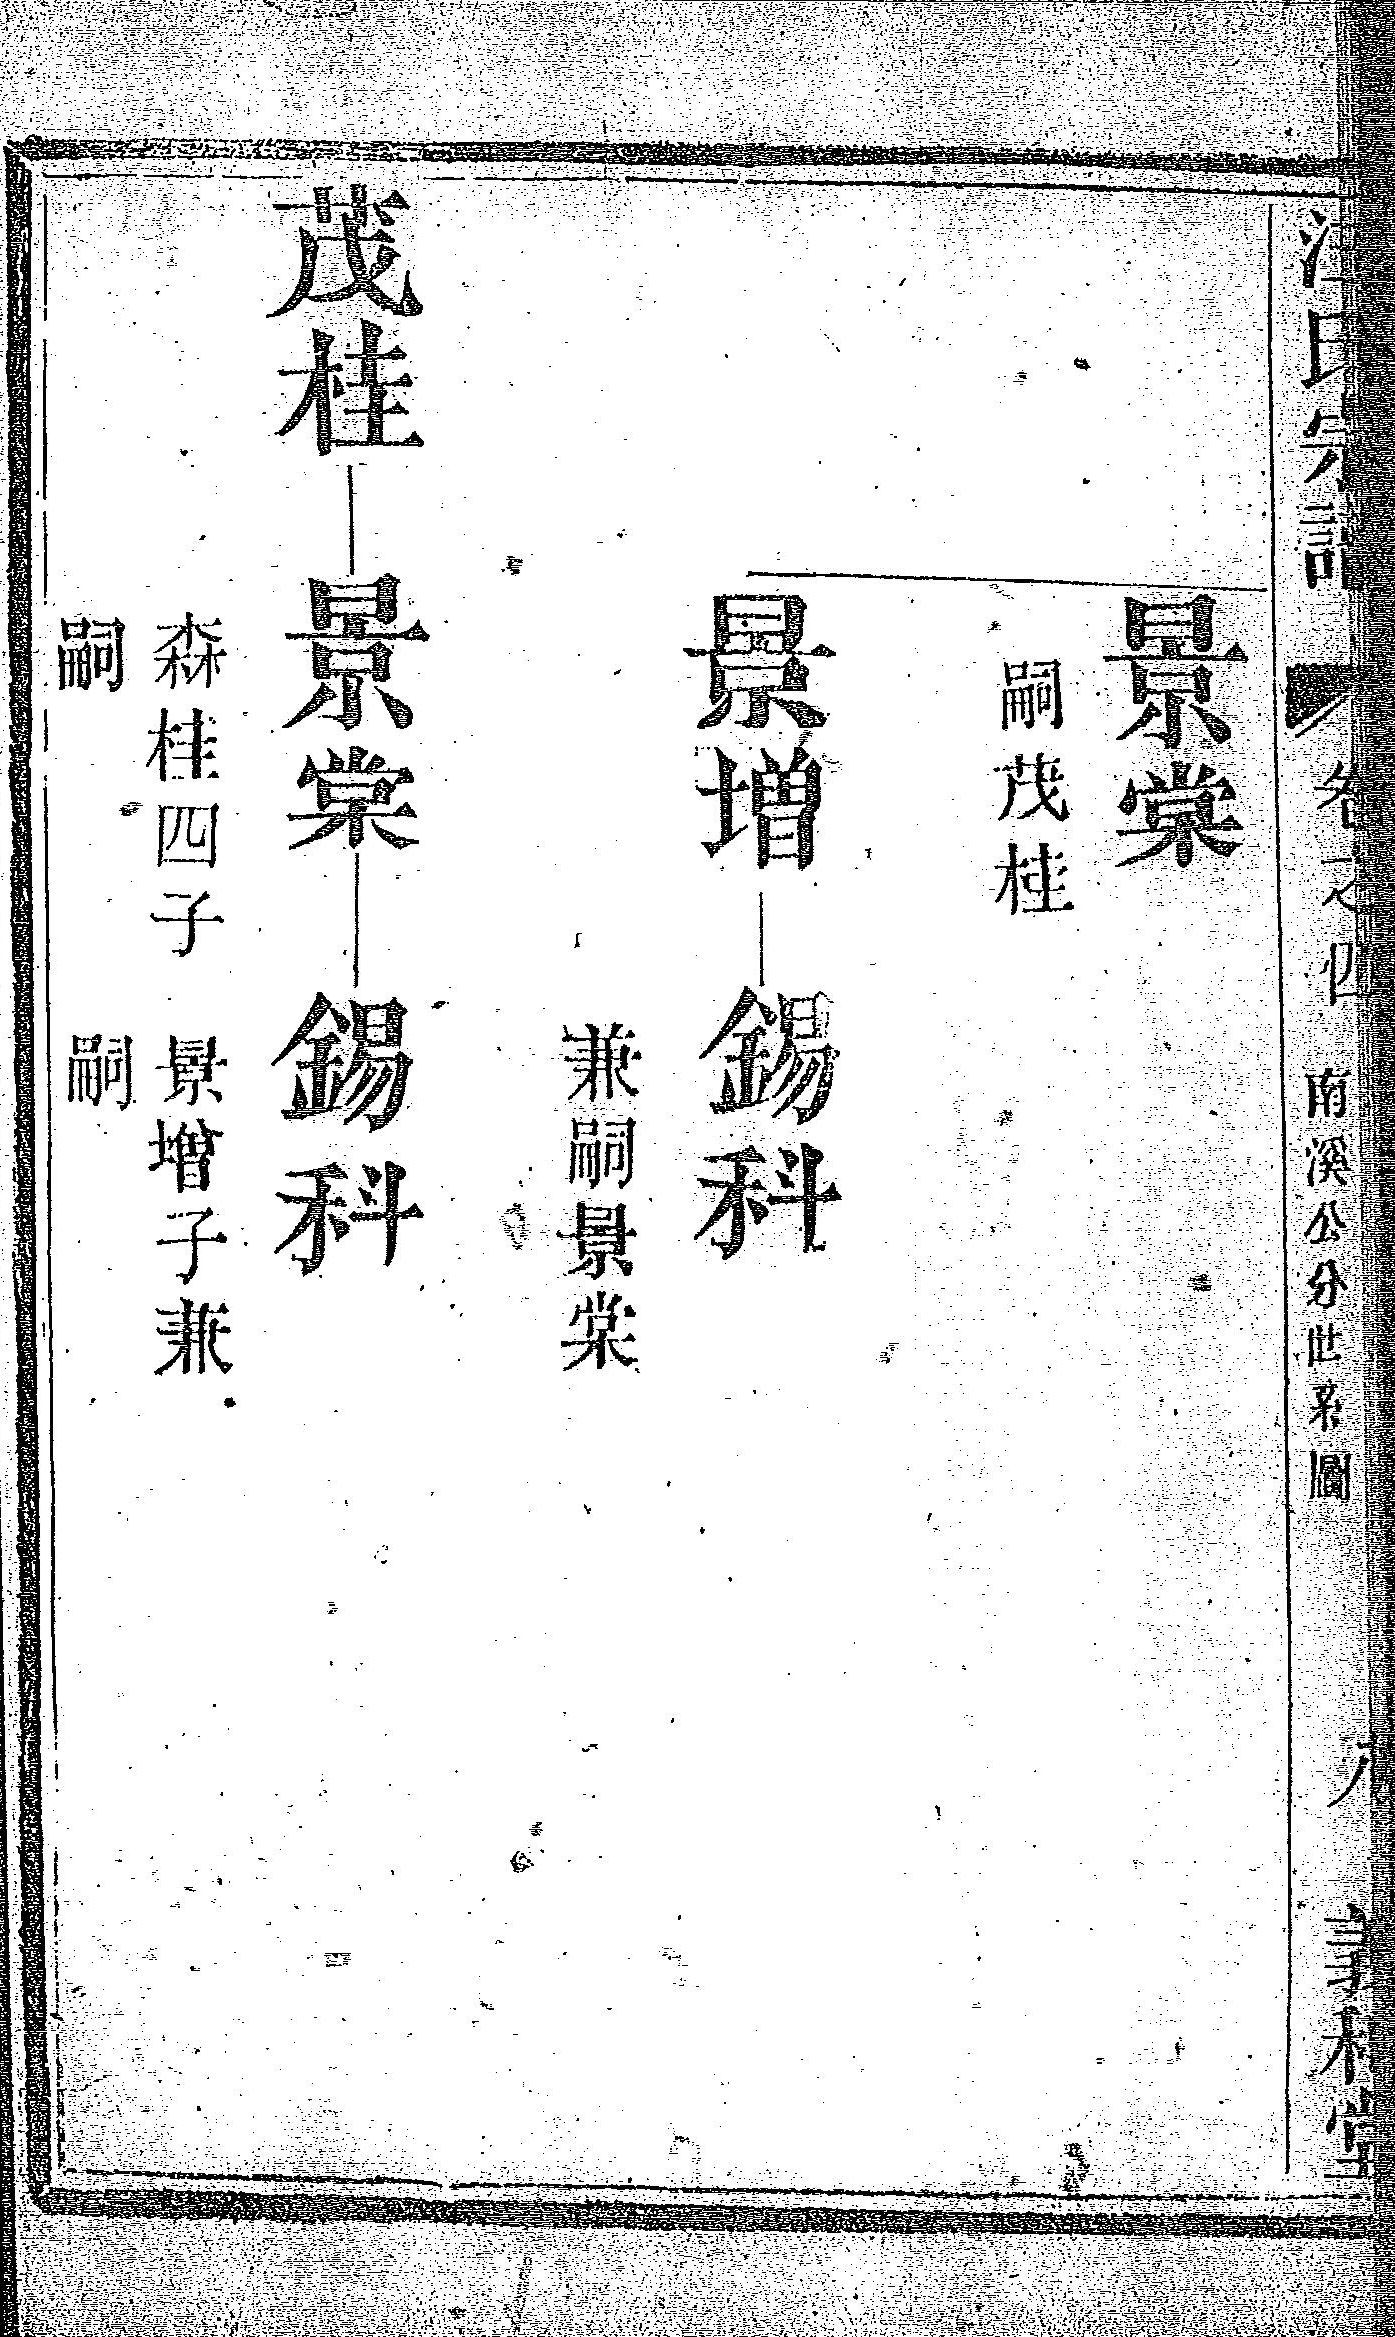 氏宗譜
卷之四
南溪公分世系圖
堂
景棠
嗣茂桂
景增
錫科
兼嗣景棠
茂桂
景棠
森桂四子
嗣
錫科
景增子兼
嗣